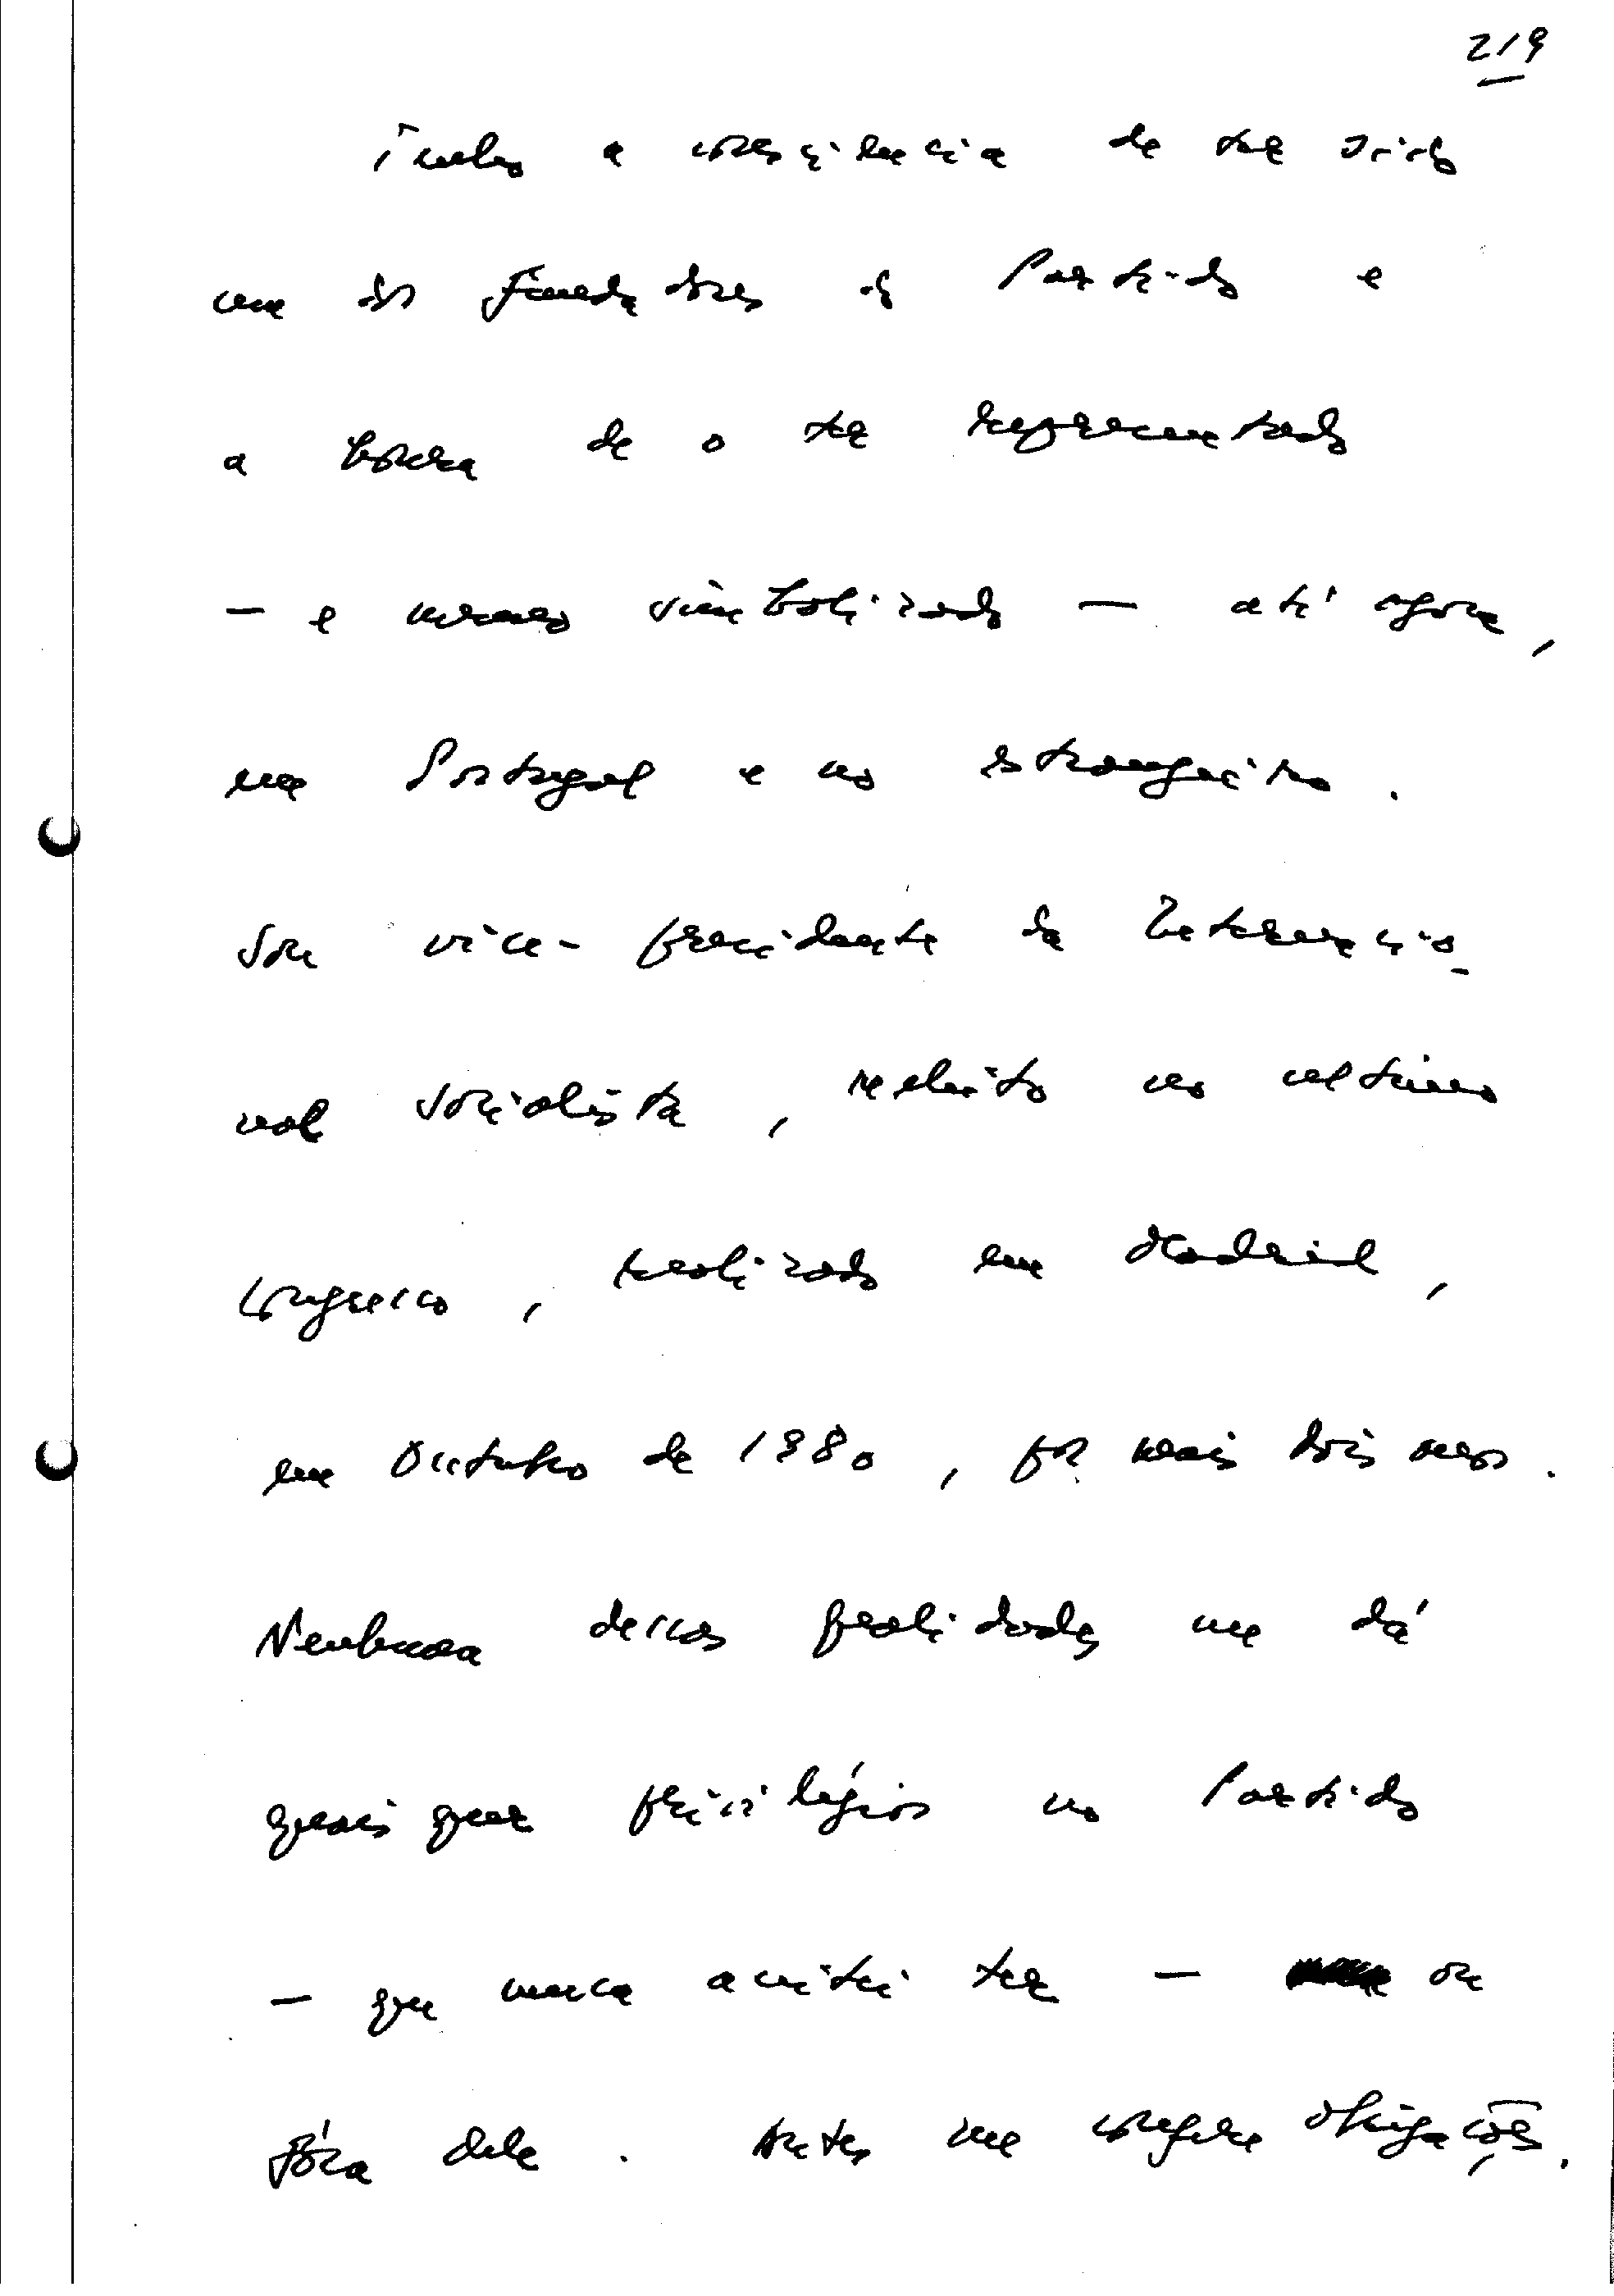 219
Tenho a consciência de ter sido
um dos fundadores do Partido e
a honra de o ter representado
— e mesmo simbolizado — até agora,
em Portugal e no estrangeiro.
Sou vice-presidente da Internacio-
nal Socialista, reeleito no último
Congresso, realizado em Madrid,
em Outubro de 1980, por mais dois anos.
Nenhuma dessas qualidades me dá
quaisquer privilégios no Partido
— que nunca aceitei ter — ou
fóra dele. Antes me confere obrigações.